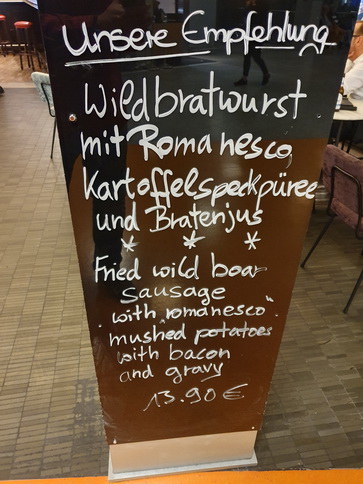 Unsere Empfehlung
Wildbratwurst
mit Romanesco,
Kartoffelspeckpüree
und Bratenjus
* * *
Fried wild boar
sausage
with romanesco,
mushed potatoes
with bacon
and gravy
13.90 €